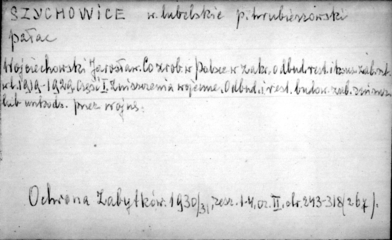 SZYCHOWICE w. lubelskie p. hrubieszowski
pałac
Wojciechowski Jarosław. Co zrob. w Polsce w zakr. odbud. rest. i konserw. zab. nier.
w l. 1919-1929. Część I. Zniszczenia wojenne. Odbud. i rest. budow. zab. zniszcz.
lub uszkodz. przez wojnę.
Ochrona Zabytków. 1930/31, zesz. 1-4, cz. II, str. 243-318 (267).